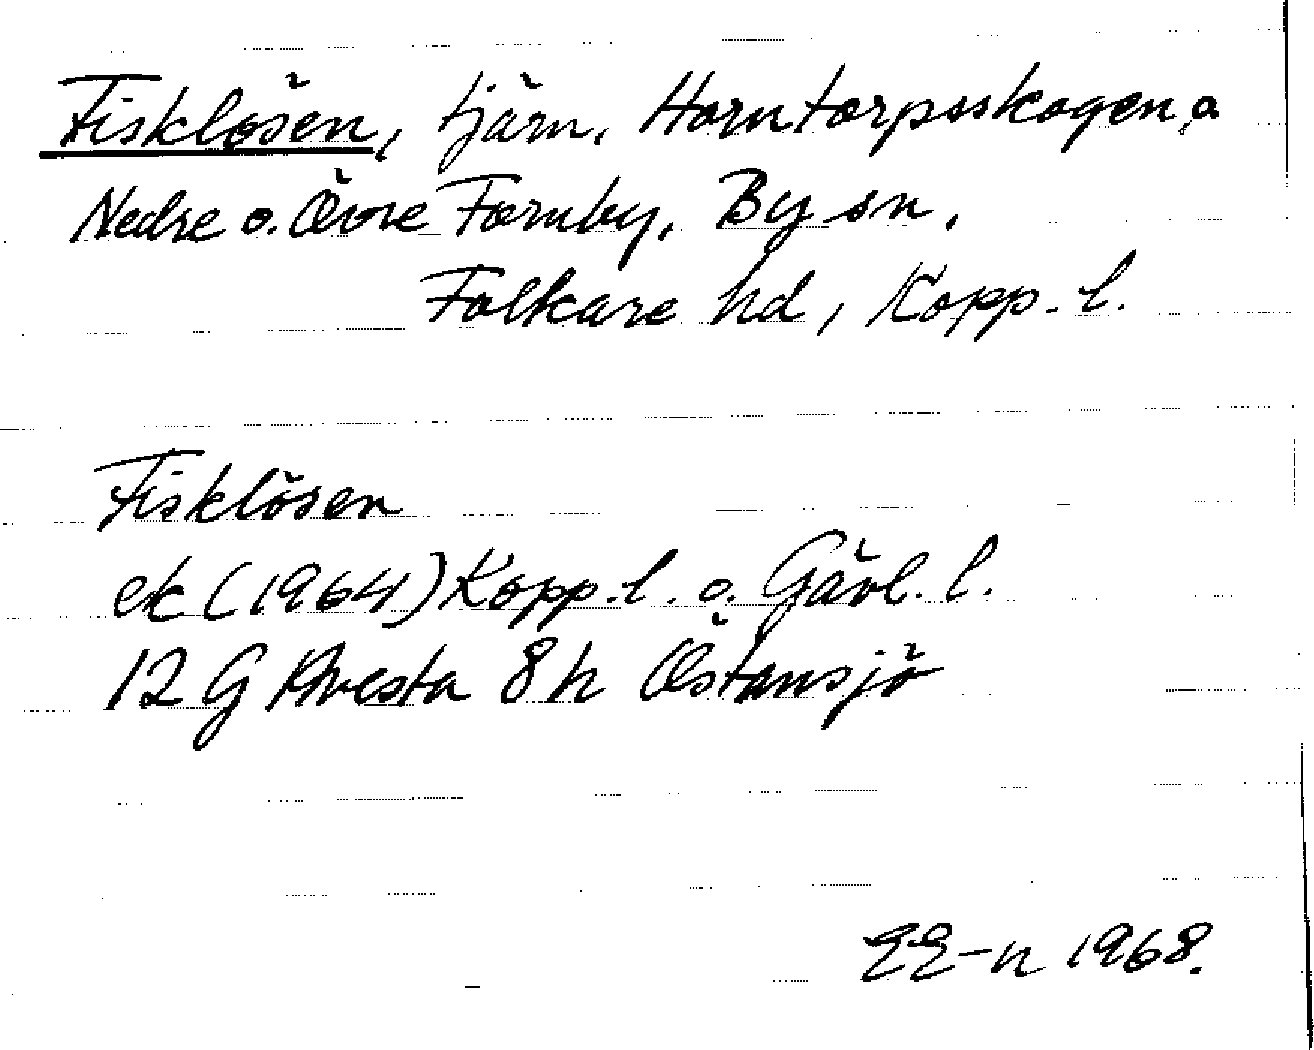 Fisklösen, tjärn, Horntorpsskogen, o
Nedre o. Övre Fornby, By sn,
Folkare hd, Kopp. l.
Fisklösen
ek (1964) Kopp. l. o. Gävl. l.
12 G Avesta 8 h Östansjö
EE-n 1968.